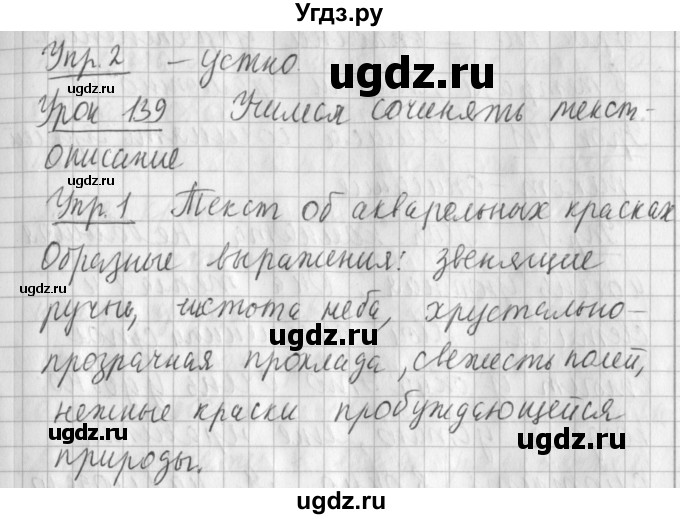 Угдз.ру
Упр. 2 – устно.
ugdz.ru
ugdz.ru
Урок 139 Учимся сочинять текст-
описание
ugdz.ru
ugdz.ru
Упр. 1 Текст об акварельных красках
Образные выражения: звенящие
ugdz.ru
ручьи, чистота неба, хрустально-
ugdz.ru
прозрачная прохлада, свежесть полей,
нежные краски пробуждающейся
ugdz.ru
ugdz.ru
природы.
ugdz.ru